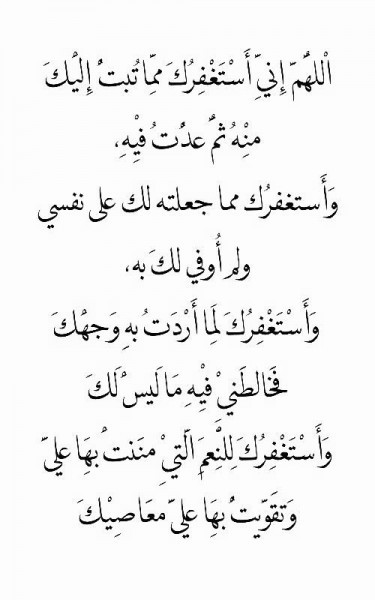 اللهُمّ إنيّ أَسْتَغْفِرُكَ ممِّا تُبتُ إليْكَ
منْهُ ثمّ عدُتُ فيْهِ،
وَأَستغفرُك مما جعلته لك على نفسي
ولم أُوفي لكَ به،
وَأَسْتَغْفِرُكَ لمَِا أَرْدَتُ بهِ وَجهْكَ
فَخالطَنيْ فيْهِ مَا ليَسْ لَكَ
وَأَسْتَغْفِرُكَ لِلنِّعمَِ الَّتيْ مننَتُ بهَِا عليّ
وَتقَوّيتُ بهَِا عليّ معَاصِيْكَ